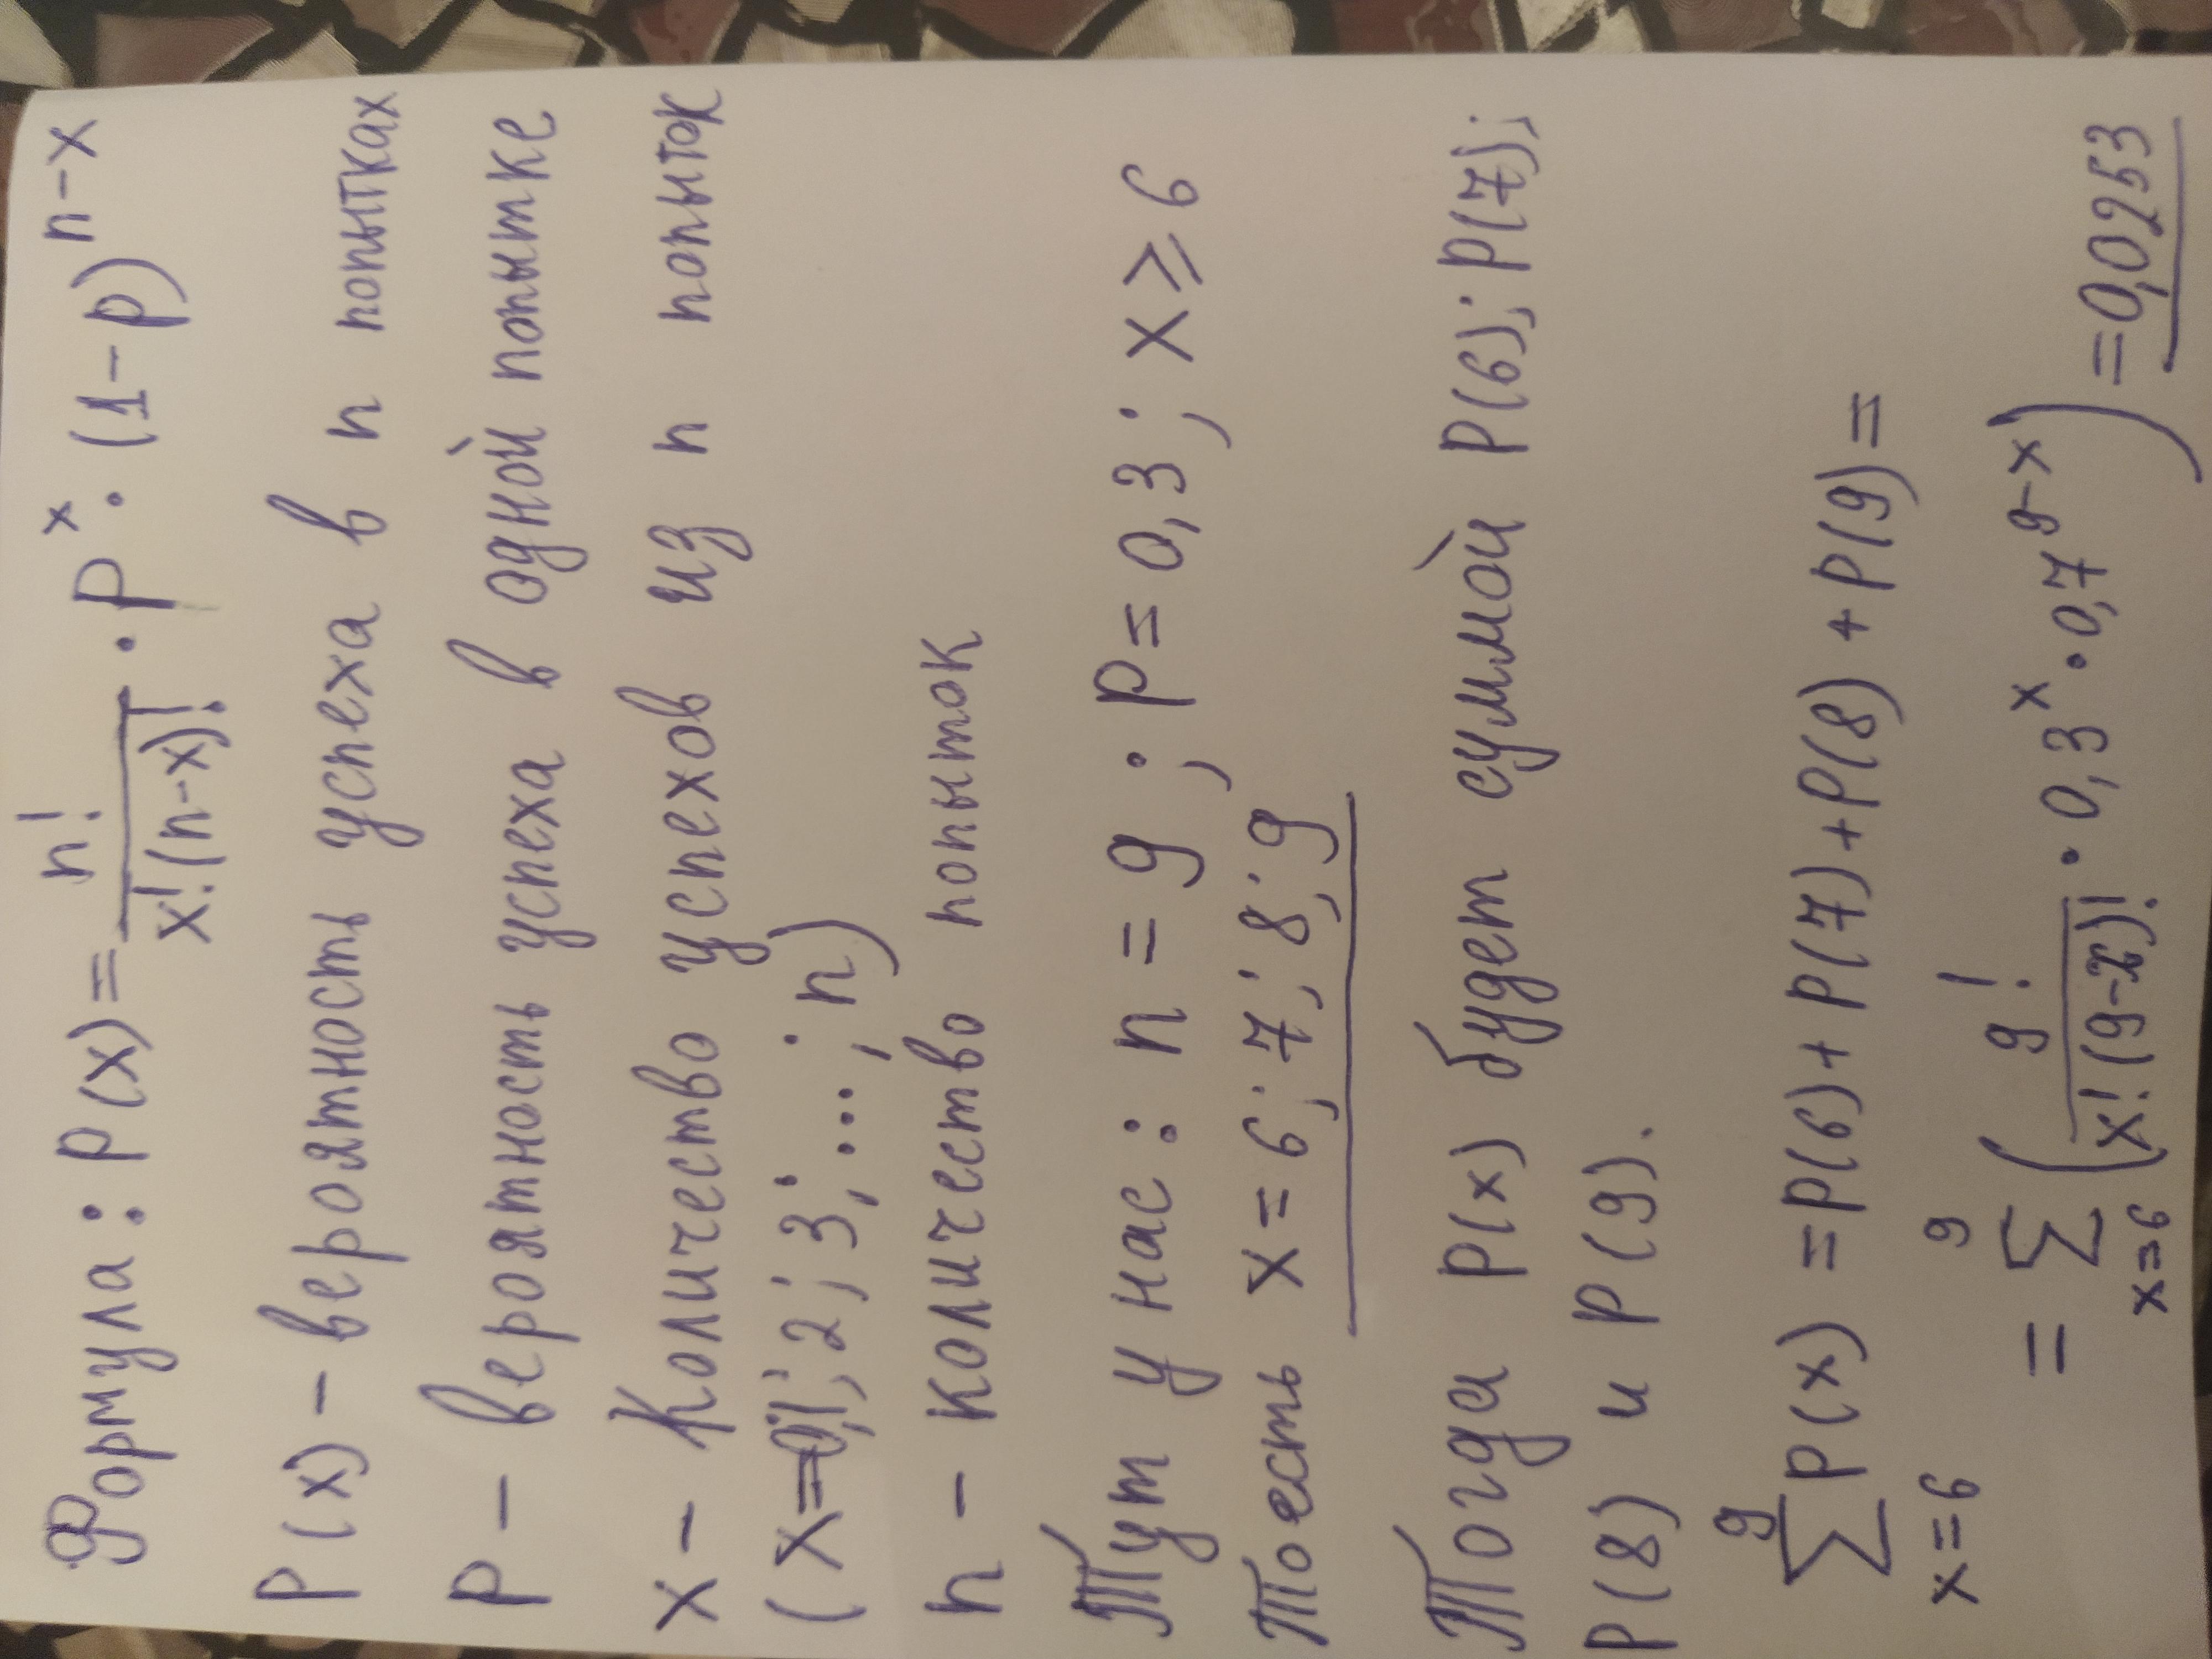 Формула: P(x) = n! / x!(n-x)! · P^x · (1-p)^n-x
P(x) - вероятность успеха в n попытках
P - вероятность успеха в одной попытке
x - Количество успехов из n попыток
(x=0;1;2;3;...;n)
n - количество попыток
Тут у нас: n = 9; p = 0,3; x ⩾ 6
Тоесть x = 6; 7; 8; 9
Тогда P(x) будет суммой P(6); P(7);
P(8) и P(9).
9 ∑ x=6 P(x) = P(6) + P(7) + P(8) + P(9) =
= 9 ∑ x=6 (9! / x!(9-x)! · 0,3^x · 0,7^9-x) = 0,0253